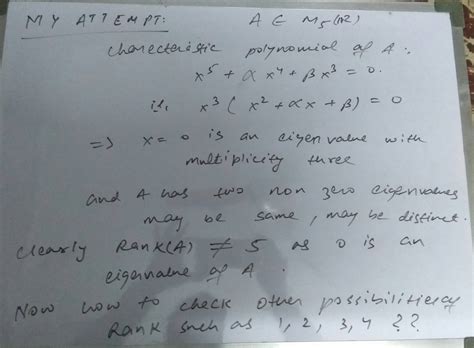 MY ATTEMPT: A ∈ M₅(IR)
Charecteristic polynomial of A :
x⁵ + α x⁴ + β x³ = 0.
ie, x³ ( x² + αx + β ) = 0
=> x = 0 is an eigen value with
multiplicity three
and A has two non zero eigenvalues
may be same, may be distinct.
Clearly Rank(A) ≠ 5 as 0 is an
eigenvalue of A.
Now how to check other possibilities of
Rank such as 1, 2, 3, 4 ??